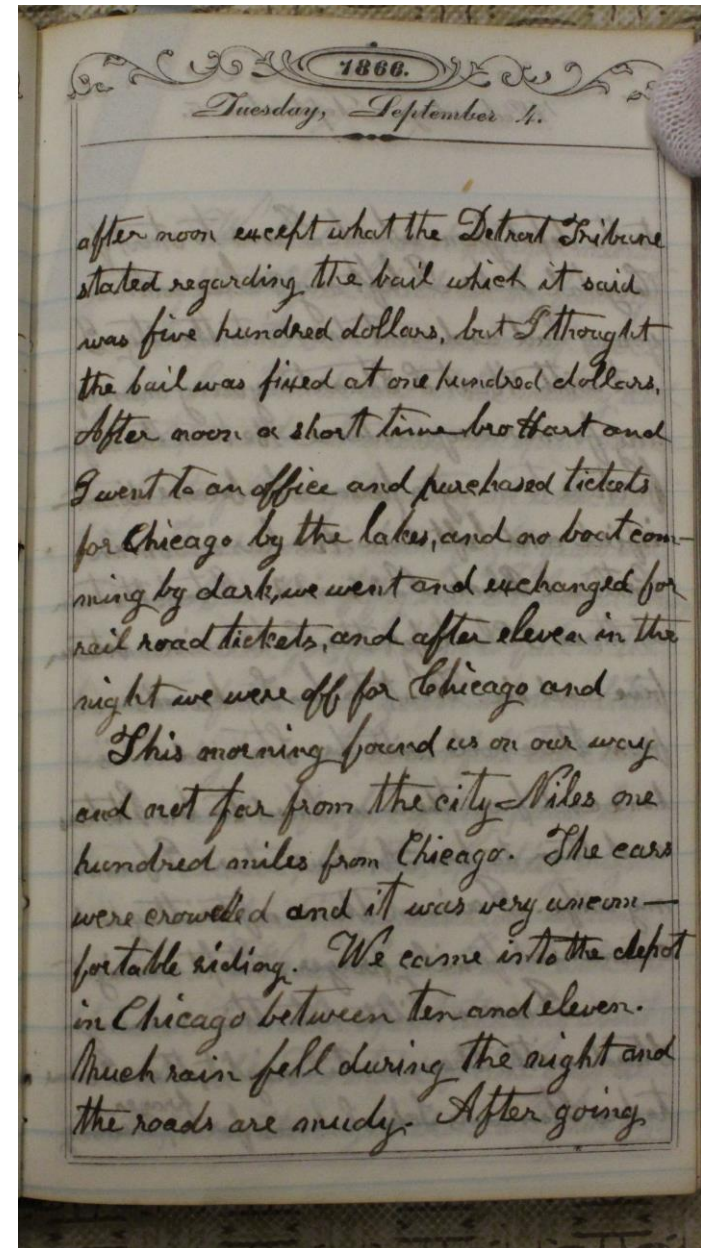 1866.
Tuesday, September 4.
after noon except what the Detroit Tribune
stated regarding the bail which it said
was five hundred dollars, but I thought
the bail was fixed at one hundred dollars.
After noon a short time bro Hart and
I went to an office and purchased tickets
for Chicago by the lakes, and no boat com-
ming by dark, we went and exchanged for
rail road tickets, and after eleven in the
night we were off for Chicago and
This morning found us on our way
and not far from the city Niles one
hundred miles from Chicago. The cars
were crowded and it was very uncom-
fortable riding. We came into the depot
in Chicago between ten and eleven.
Much rain fell during the night and
the roads are mudy. After going